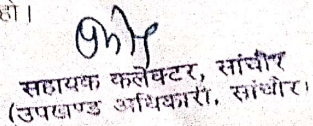 हो।
सहायक कलेक्टर, सांचौर
(उपखण्ड अधिकारी, सांचौर।